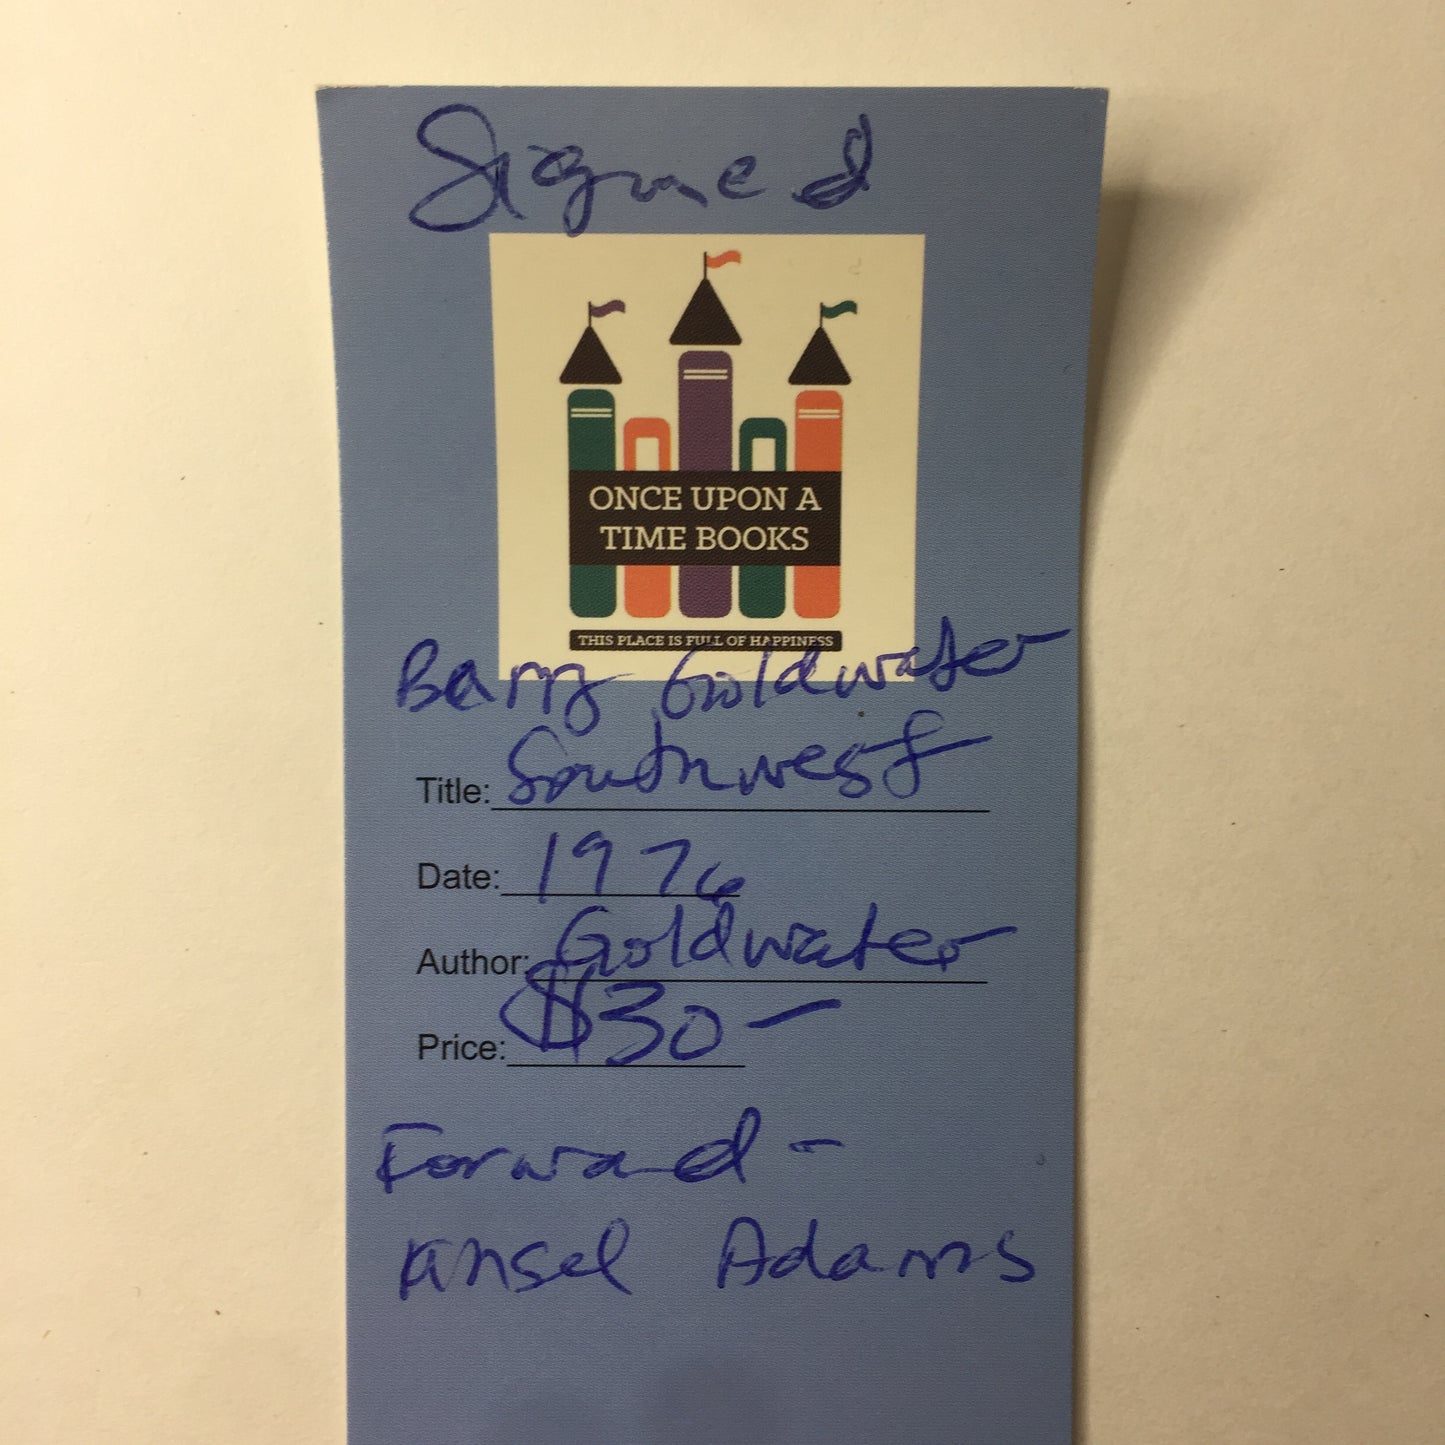 Signed
ONCE UPON A
TIME BOOKS
THIS PLACE IS FULL OF HAPPINESS
Barry Goldwater
Title: Southwest
Date: 1976
Author: Goldwater
Price: $30-
Forward -
Ansel Adams